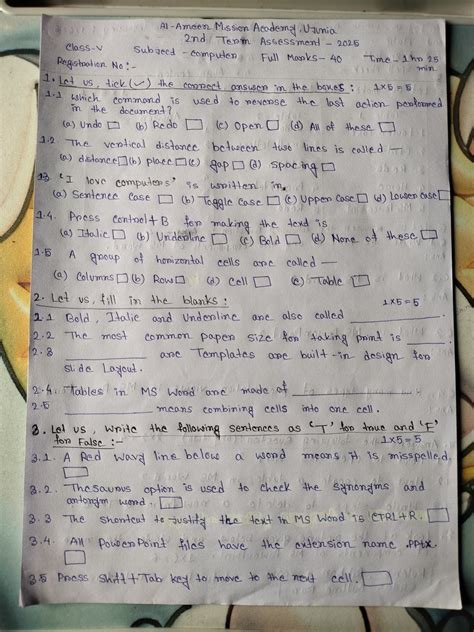 Al-Ameen Mission Academy, Uzunia
2nd Term Assessment - 2025
Class-V Subject - Computer Full Marks - 40 Time - 1 hr 25 min
Registration No :-
1. Let us, tick (✓) the correct answer in the boxes: 1x5=5
1.1 Which command is used to reverse the last action performed
in the document?
(a) Undo □ (b) Redo □ (c) Open □ (d) All of these □
1.2 The vertical distance between two lines is called —
(a) distance □ (b) place □ (c) gap □ (d) spacing □
13. 'I love computers' is written in.
(a) Sentence case □ (b) Toggle Case □ (c) Upper Case □ (d) Lower Case □
1.4. Press Control+B for making the text is
(a) Italic □ (b) Underline □ (c) Bold □ (d) None of these □
1.5 A group of horizontal cells are called —
(a) Columns □ (b) Row □ (d) Cell □ (c) Table □
2. Let us, fill in the blanks: 1x5=5
2.1 Bold, Italic and Underline are also called ______
2.2 The most common paper size for taking print is ______.
2.3 ______ are Templates are built-in design for
slide Layout.
2.4. Tables in MS Word are made of ______
2.5 ______ means combining cells into one cell.
3. Let us, write the following sentences as 'T' for true and 'F'
for False :- 1x5=5
3.1. A Red wavy line below a word means, it is misspelled.
□
3.2. Thesaurus option is used to check the synonyms and
antonym word. □
3.3 The shortcut to justify the text in MS Word is CTRL+R. □
3.4. All PowerPoint files have the extension name .PPtx.
□
3.5 Press Shift+Tab key to move to the next cell. □